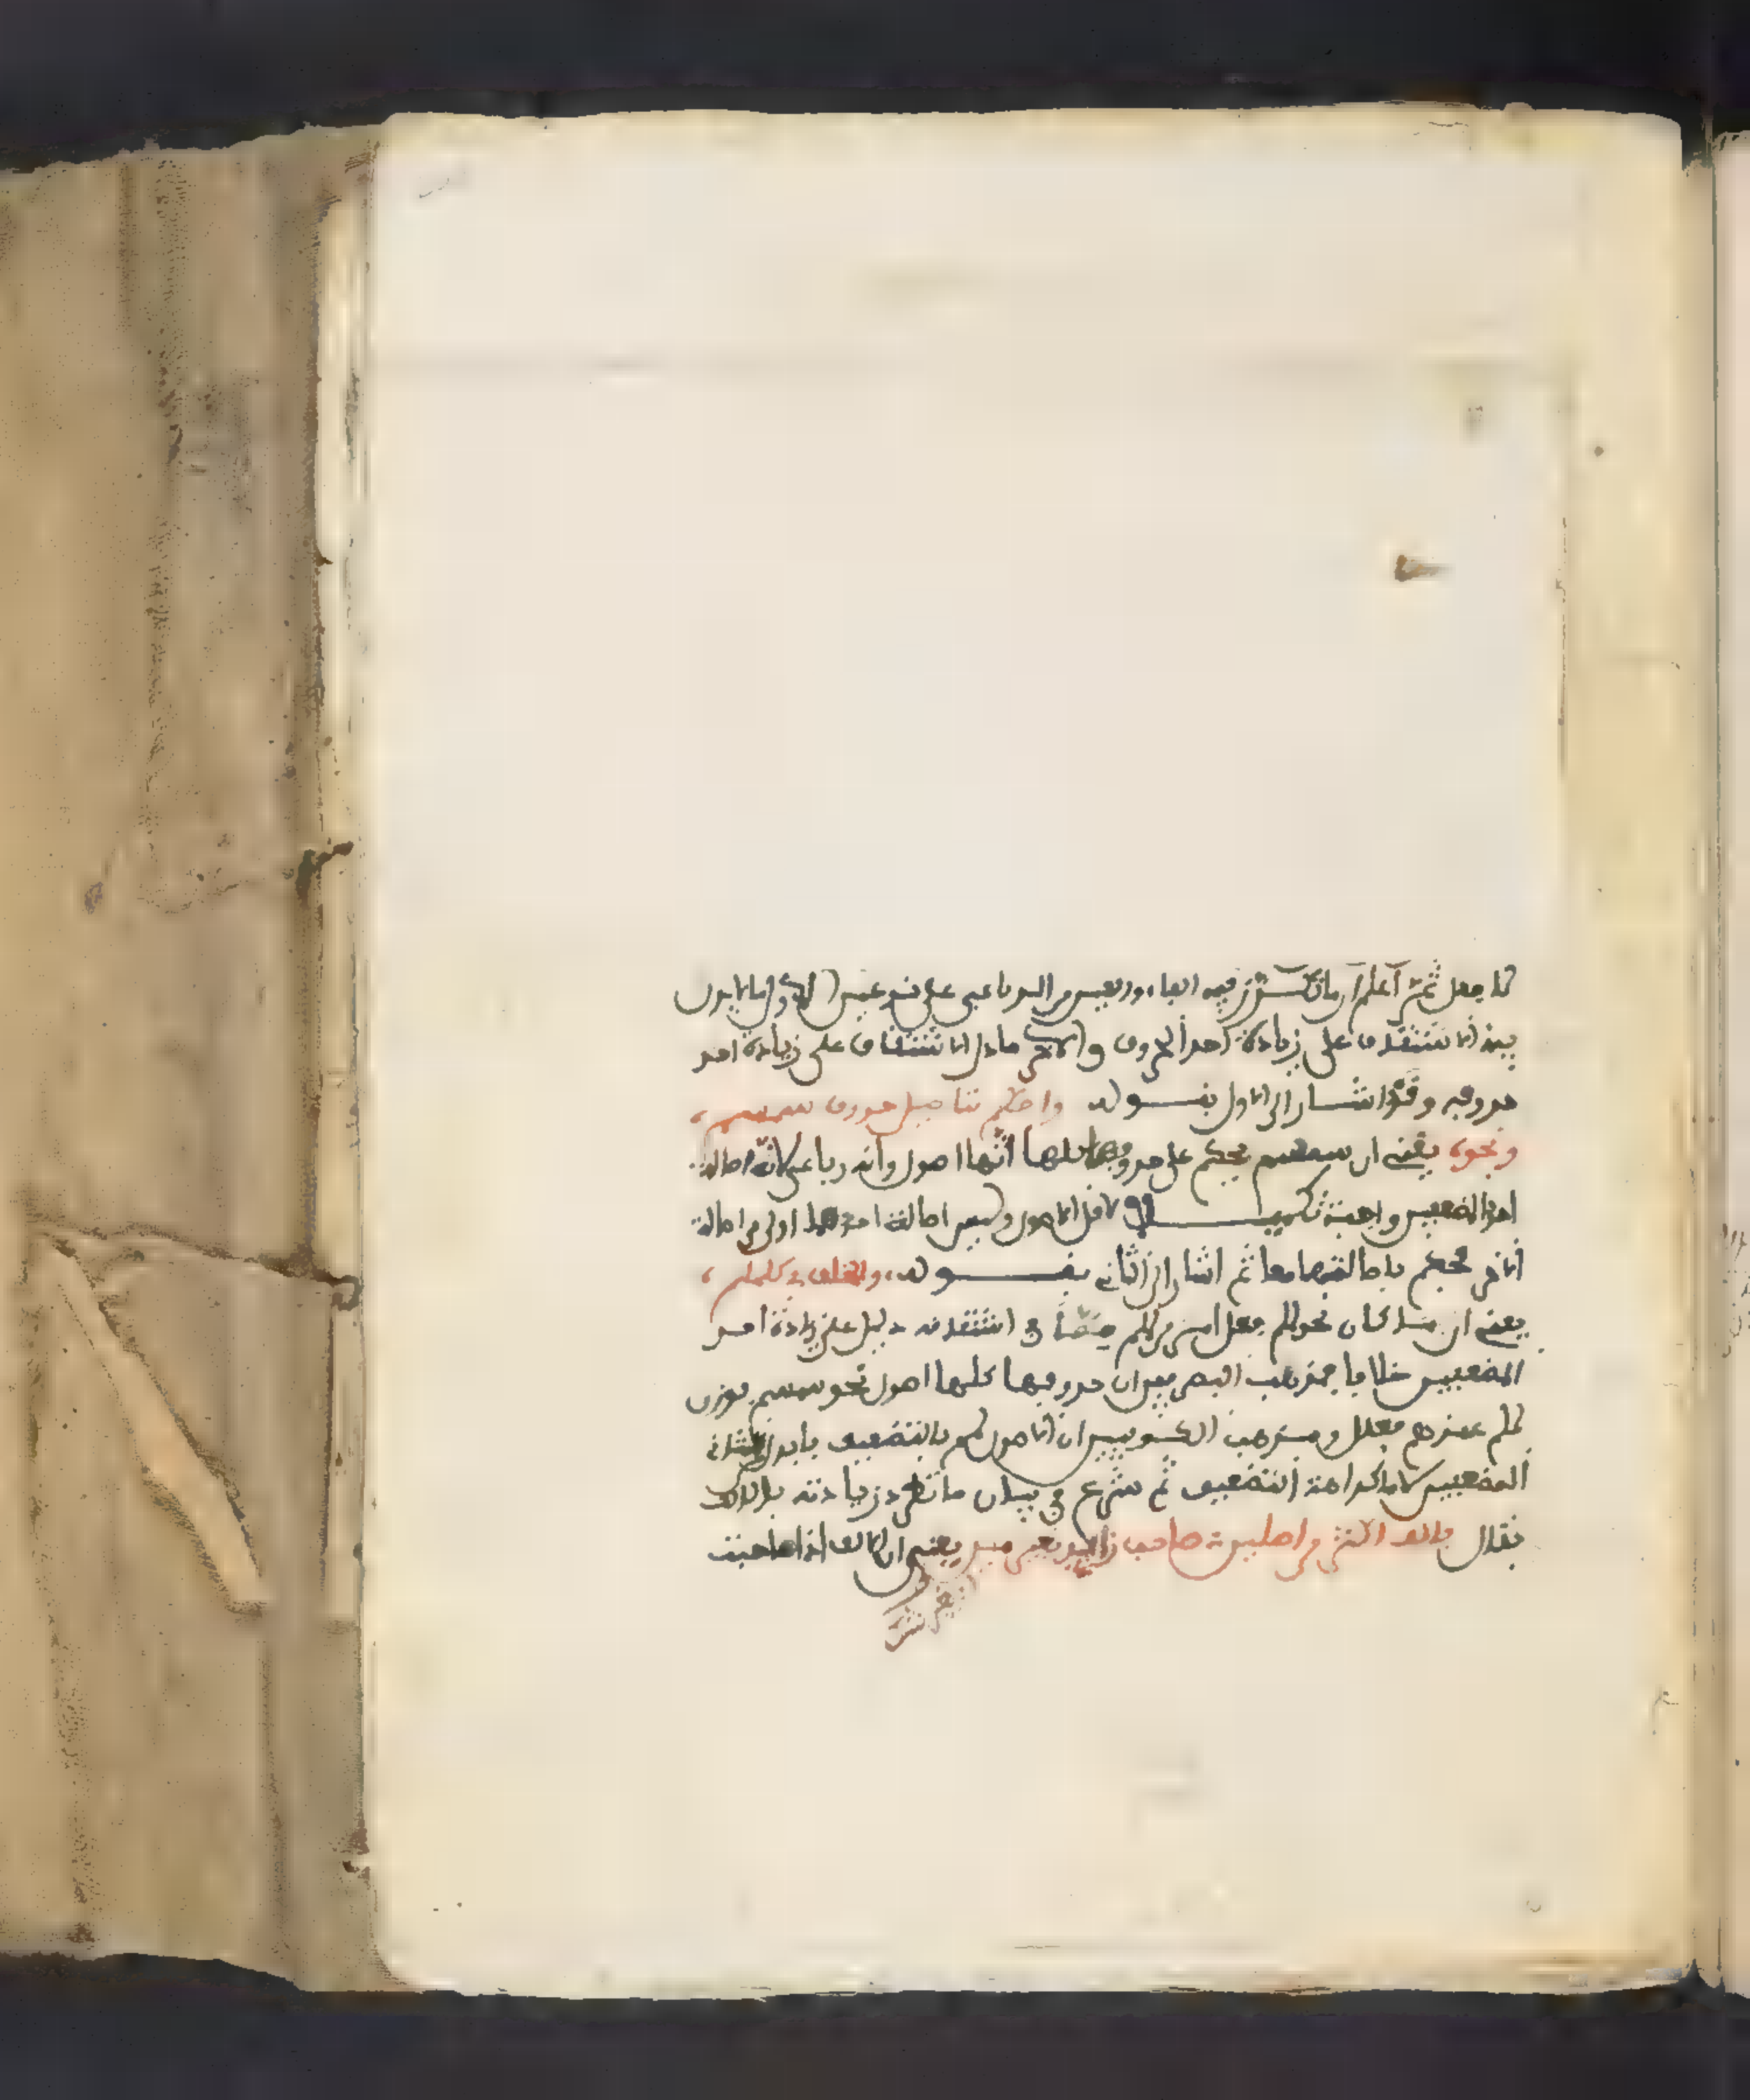 كما فعل ثم اعلم ان ما تكرر فيه الفاء والعين من الرباعي على نوعين الاول ما لا يدل
فيه الاشتقاق على زيادة احد الحروف والاخر ما دل الاشتقاق على زيادة احد
حروفه وقد اشار الى الاول بقوله واحكم بتاصيل حروف سمسم،
ونحوه يعني ان سمسم يحكم على حروفها كلها انها اصول وانه رباعي لان اصالة
احد المضعفين واجبة تكميلا لاقل الاصول وليس اصالة احدهما اولى من اصالة
الاخر فحكم باصالتهما معا ثم اشار الى الثاني بقوله، والخلف في كلملم،
يعني ان ما كان نحو لملم فعل امر من لملم مضا في اشتقاقه دليل على زيادة احد
المضعفين خلافا فمذهب البصريين ان حروفها كلها اصول نحو سمسم فوزن
لملم عندهم فعلل ومذهب الكوفيين ان الاصول لمم بالتضعيف فابدل
المضعفين لاما كراهة التضعيف ثم شرع في بيان ما تطرد زيادته بالالف
فقال فالف اكثر من اصلين صاحب زائد بغير مين يعني ان الالف اذا صاحبت